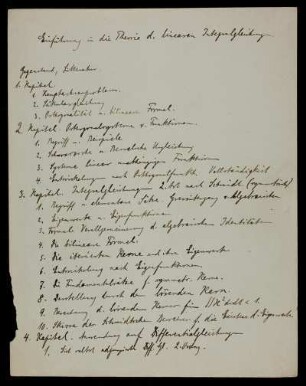 Einführung in die Theorie d. linearen Integralgleichung
Gegenstand, Literatur
1. Kapitel.
1. Hauptachsenproblem.
2. Säkulargleichung
3. Orthogonalität u. bilineare Formel.
2. Kapitel Orthogonalsysteme v. Funktionen.
1. Begriff u. Beispiele
2. Schwarzsche u. Besselsche Ungleichung
3. Systeme linear unabhängiger Funktionen
4. Entwicklungen nach Orthogonalfunkt. Vollständigkeit
3. Kapitel. Integralgleichungen 2. Art nach Schmidt
1. Begriff u. elementare Sätze. Grenzübergang v. Algebraischen
2. Eigenwerte u. Eigenfunktionen
3. Formale Verallgemeinerung d. algebraischen Identitäten
4. Die bilineare Formel.
5. Die iterierten Kerne und ihre Eigenwerte
6. Entwicklung nach Eigenfunktionen.
7. Die Fundamentalsätze f. symmetr. Kerne.
8. Darstellung durch den lösenden Kern.
9. d. lösenden Kernes für
10. d. Schmidtschen f. die d. Eigenwerte.
4. Kapitel. Anwendung auf Differentialgleichung
1. selbst adjungierte Diff. gl. 2. Ordng.